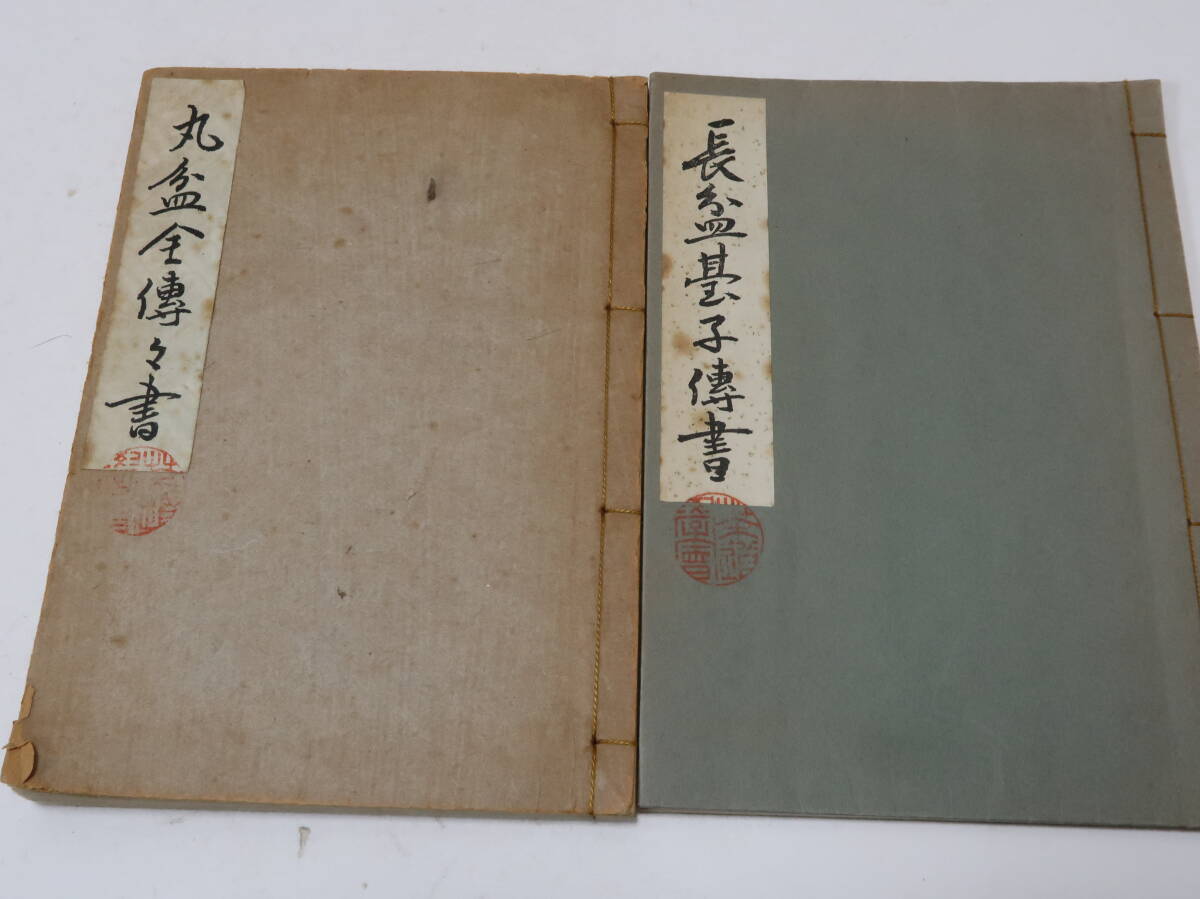 丸盆全傳々書
長盆臺子傳書